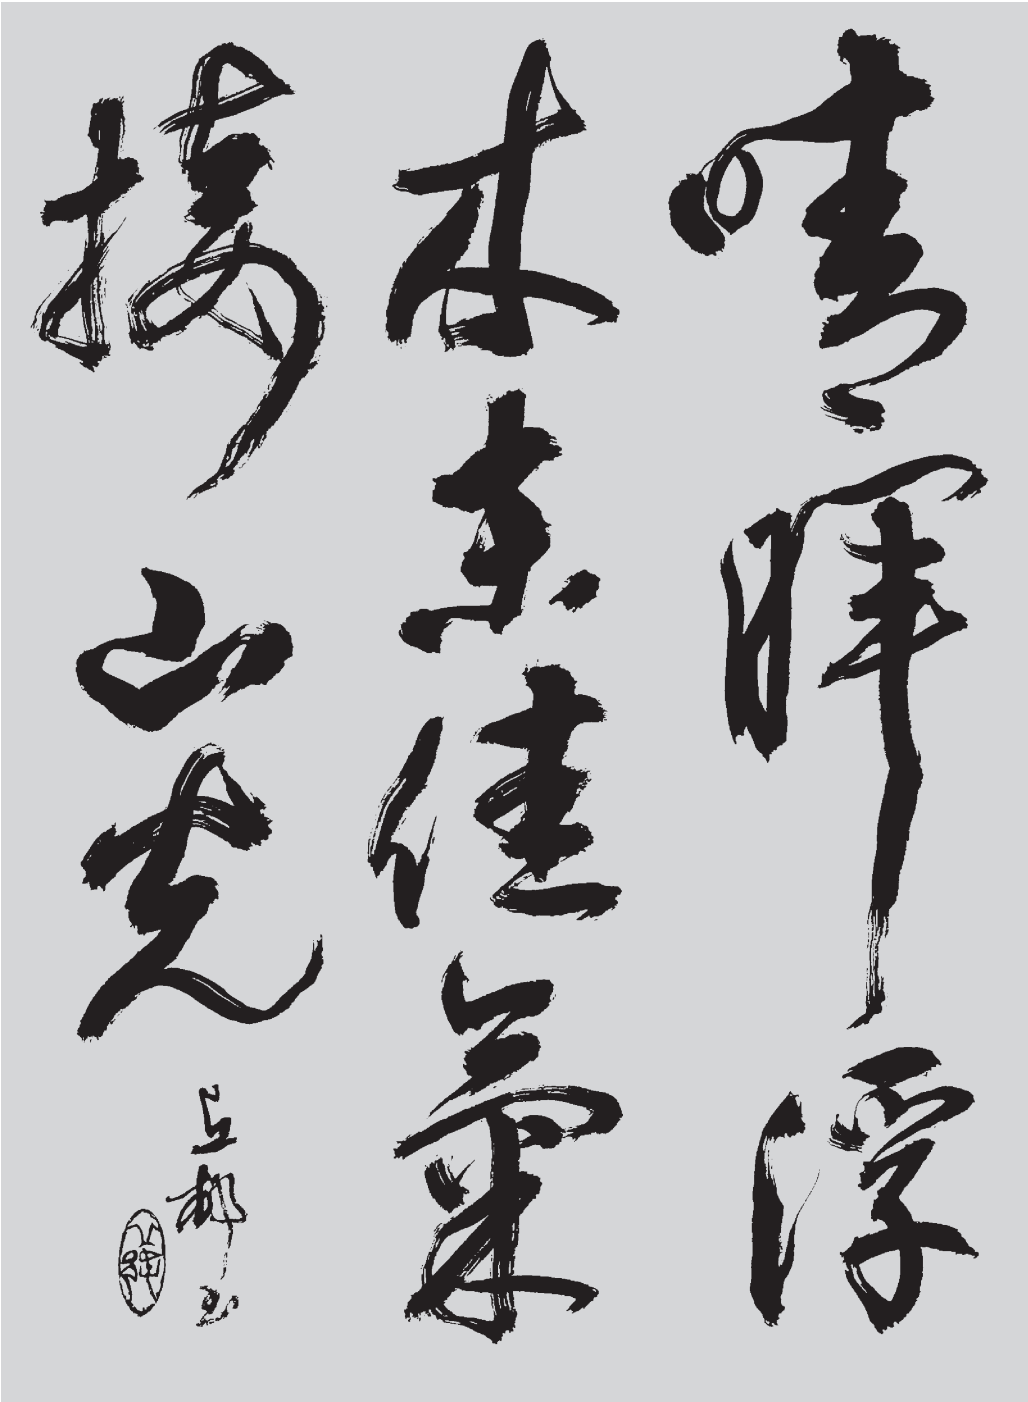 晴暉浮
木末佳氣
接山光